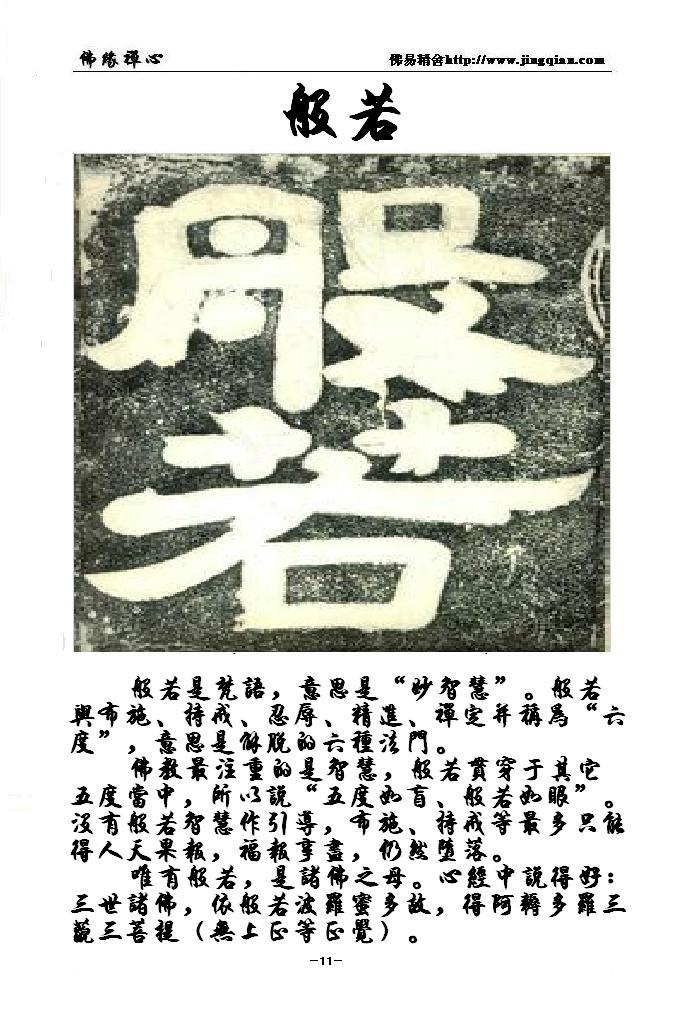 佛緣禪心
佛易精舍http://www.jingqian.com
般若
般
若
般若是梵語，意思是“妙智慧”。般若
與布施、持戒、忍辱、精進、禪定并稱爲“六
度”，意思是解脫的六種法門。
佛教最注重的是智慧，般若貫穿于其它
五度當中，所以說“五度如盲、般若如眼”。
沒有般若智慧作引導，布施、持戒等最多只能
得人天果報，福報享盡，仍然墮落。
唯有般若，是諸佛之母。心經中說得好：
三世諸佛，依般若波羅蜜多故，得阿耨多羅三
藐三菩提（無上正等正覺）。
-11-